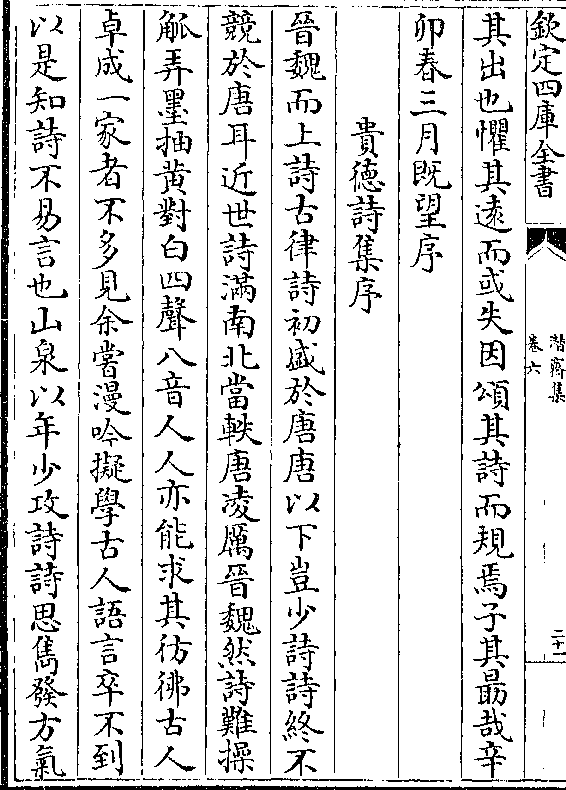 欽定四庫全書
潛齋集
卷六
二十一
其出也懼其遠而或失因頌其詩而規焉子其勗哉辛
卯春三月既望序
貴德詩集序
晉魏而上詩古律詩初盛於唐唐以下豈少詩詩終不
競於唐耳近世詩滿南北當軼唐凌厲晉魏然詩難操
觚弄墨抽黄對白四聲八音人人亦能求其彷彿古人
卓成一家者不多見余嘗漫吟擬學古人語言卒不到
以是知詩不易言也山泉以年少攻詩詩思雋發方氣